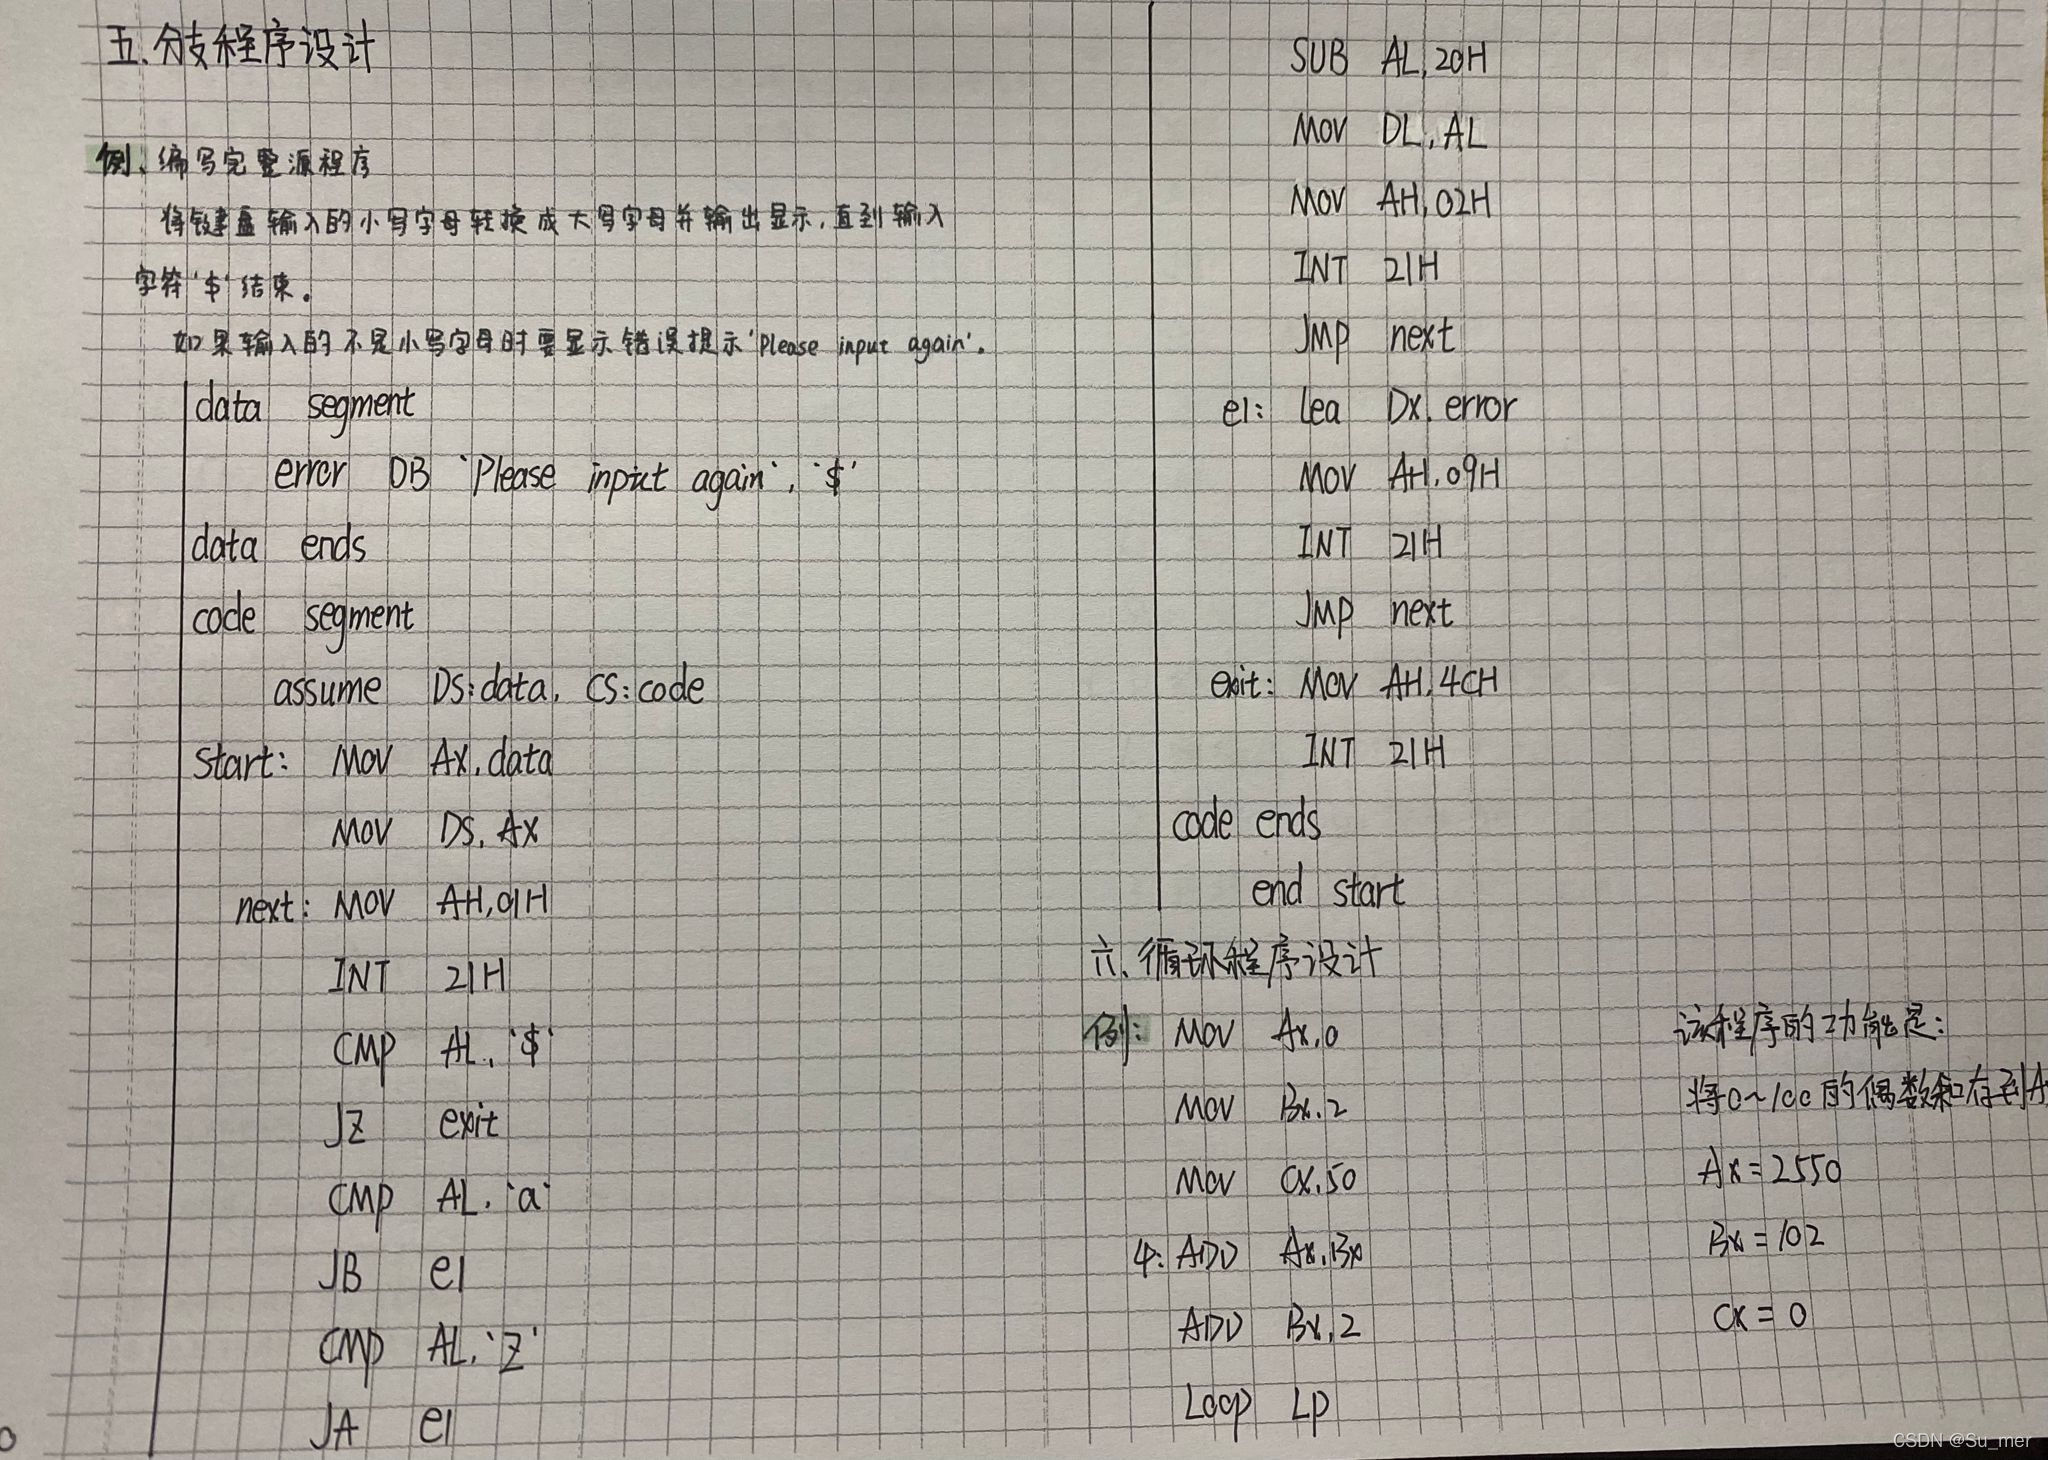 五.分支程序设计
例、编写完整源程序
将键盘输入的小写字母转换成大写字母并输出显示,直到输入
字符'$'结束。
如果输入的不是小写字母时要显示错误提示'Please input again'.
data segment
error DB 'Please input again','$'
data ends
code segment
assume DS:data, CS:code
start: MOV AX,data
MOV DS,AX
next: MOV AH,01H
INT 21H
CMP AL,'$'
JZ exit
CMP AL,'a'
JB e1
CMP AL,'Z'
JA e1
SUB AL,20H
MOV DL,AL
MOV AH,02H
INT 21H
JMP next
e1: Lea Dx,error
MOV AH,09H
INT 21H
JMP next
exit: MOV AH,4CH
INT 21H
code ends
end start
六、循环程序设计
例: MOV Ax,0
MOV Bx,2
MOV CX,50
LP: ADD Ax,Bx
ADD Bx,2
Loop LP
该程序的功能是:
将0~100的偶数和存到A
Ax=2550
Bx=102
CX=0
CSDN @Su_mer